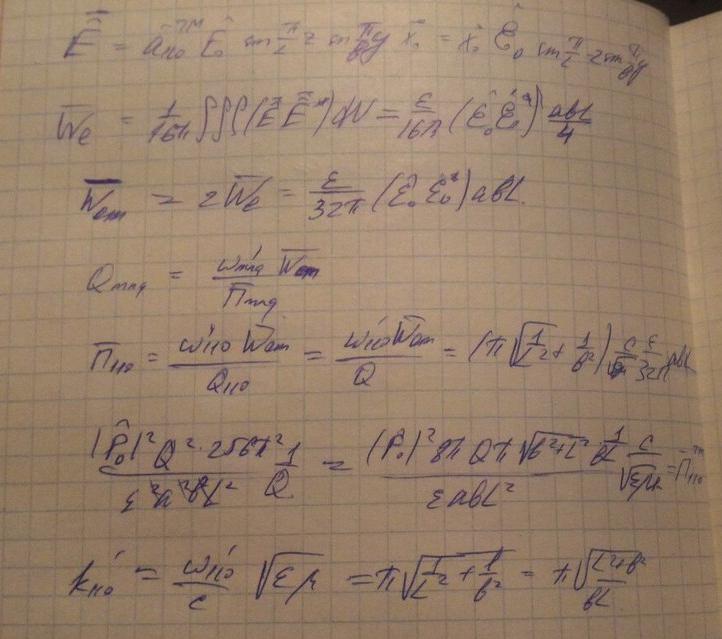 Ē⃗ = â₁₁₀ᵀᴹ Ê₀ sin π/L z sin π/b y x⃗₀ = x⃗₀ Ê₀ sin π/L z sin π/b y
W̄e = 1/16π ∭(E⃗ E⃗*) dV = ε/16π (Ê₀ Ê₀*) abL/4
W̄эм = 2W̄e = ε/32π (Ê₀ Ê₀*) abL.
Qmnq = ω'mnq W̄эм / П̄mnq
П̄₁₁₀ = ω'₁₁₀ W̄эм / Q₁₁₀ = ω'₁₁₀ W̄эм / Q = (π √(1/L² + 1/b²)) c/√εμ ε/32π abL
|P̂₀|² Q² · 256π² / ε² a² b² L² 1/Q = |P̂₀|² 8π Q π √(b²+L²) · 1/bL / ε abL² c/√εμ = П̄₁₁₀ᵀᴹ
k'₁₁₀ = ω'₁₁₀/c √εμ = π √(1/L² + 1/b²) = π √(L²+b²) / bL